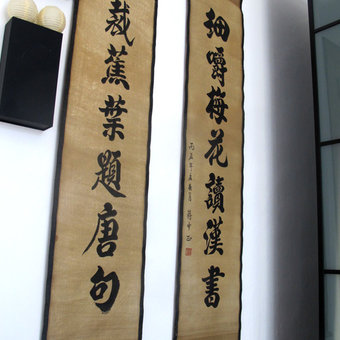 細嚼梅花讀漢書
裁蕉葉題唐句